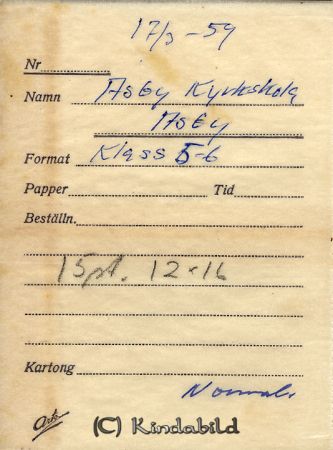 17/3 - 59
Nr
Namn Asby Kyrkskola
Asby
Format Klass 5-6
Papper Tid
Beställn.
15 st. 12 x 16
Kartong
Normal.
(C) Kindabild